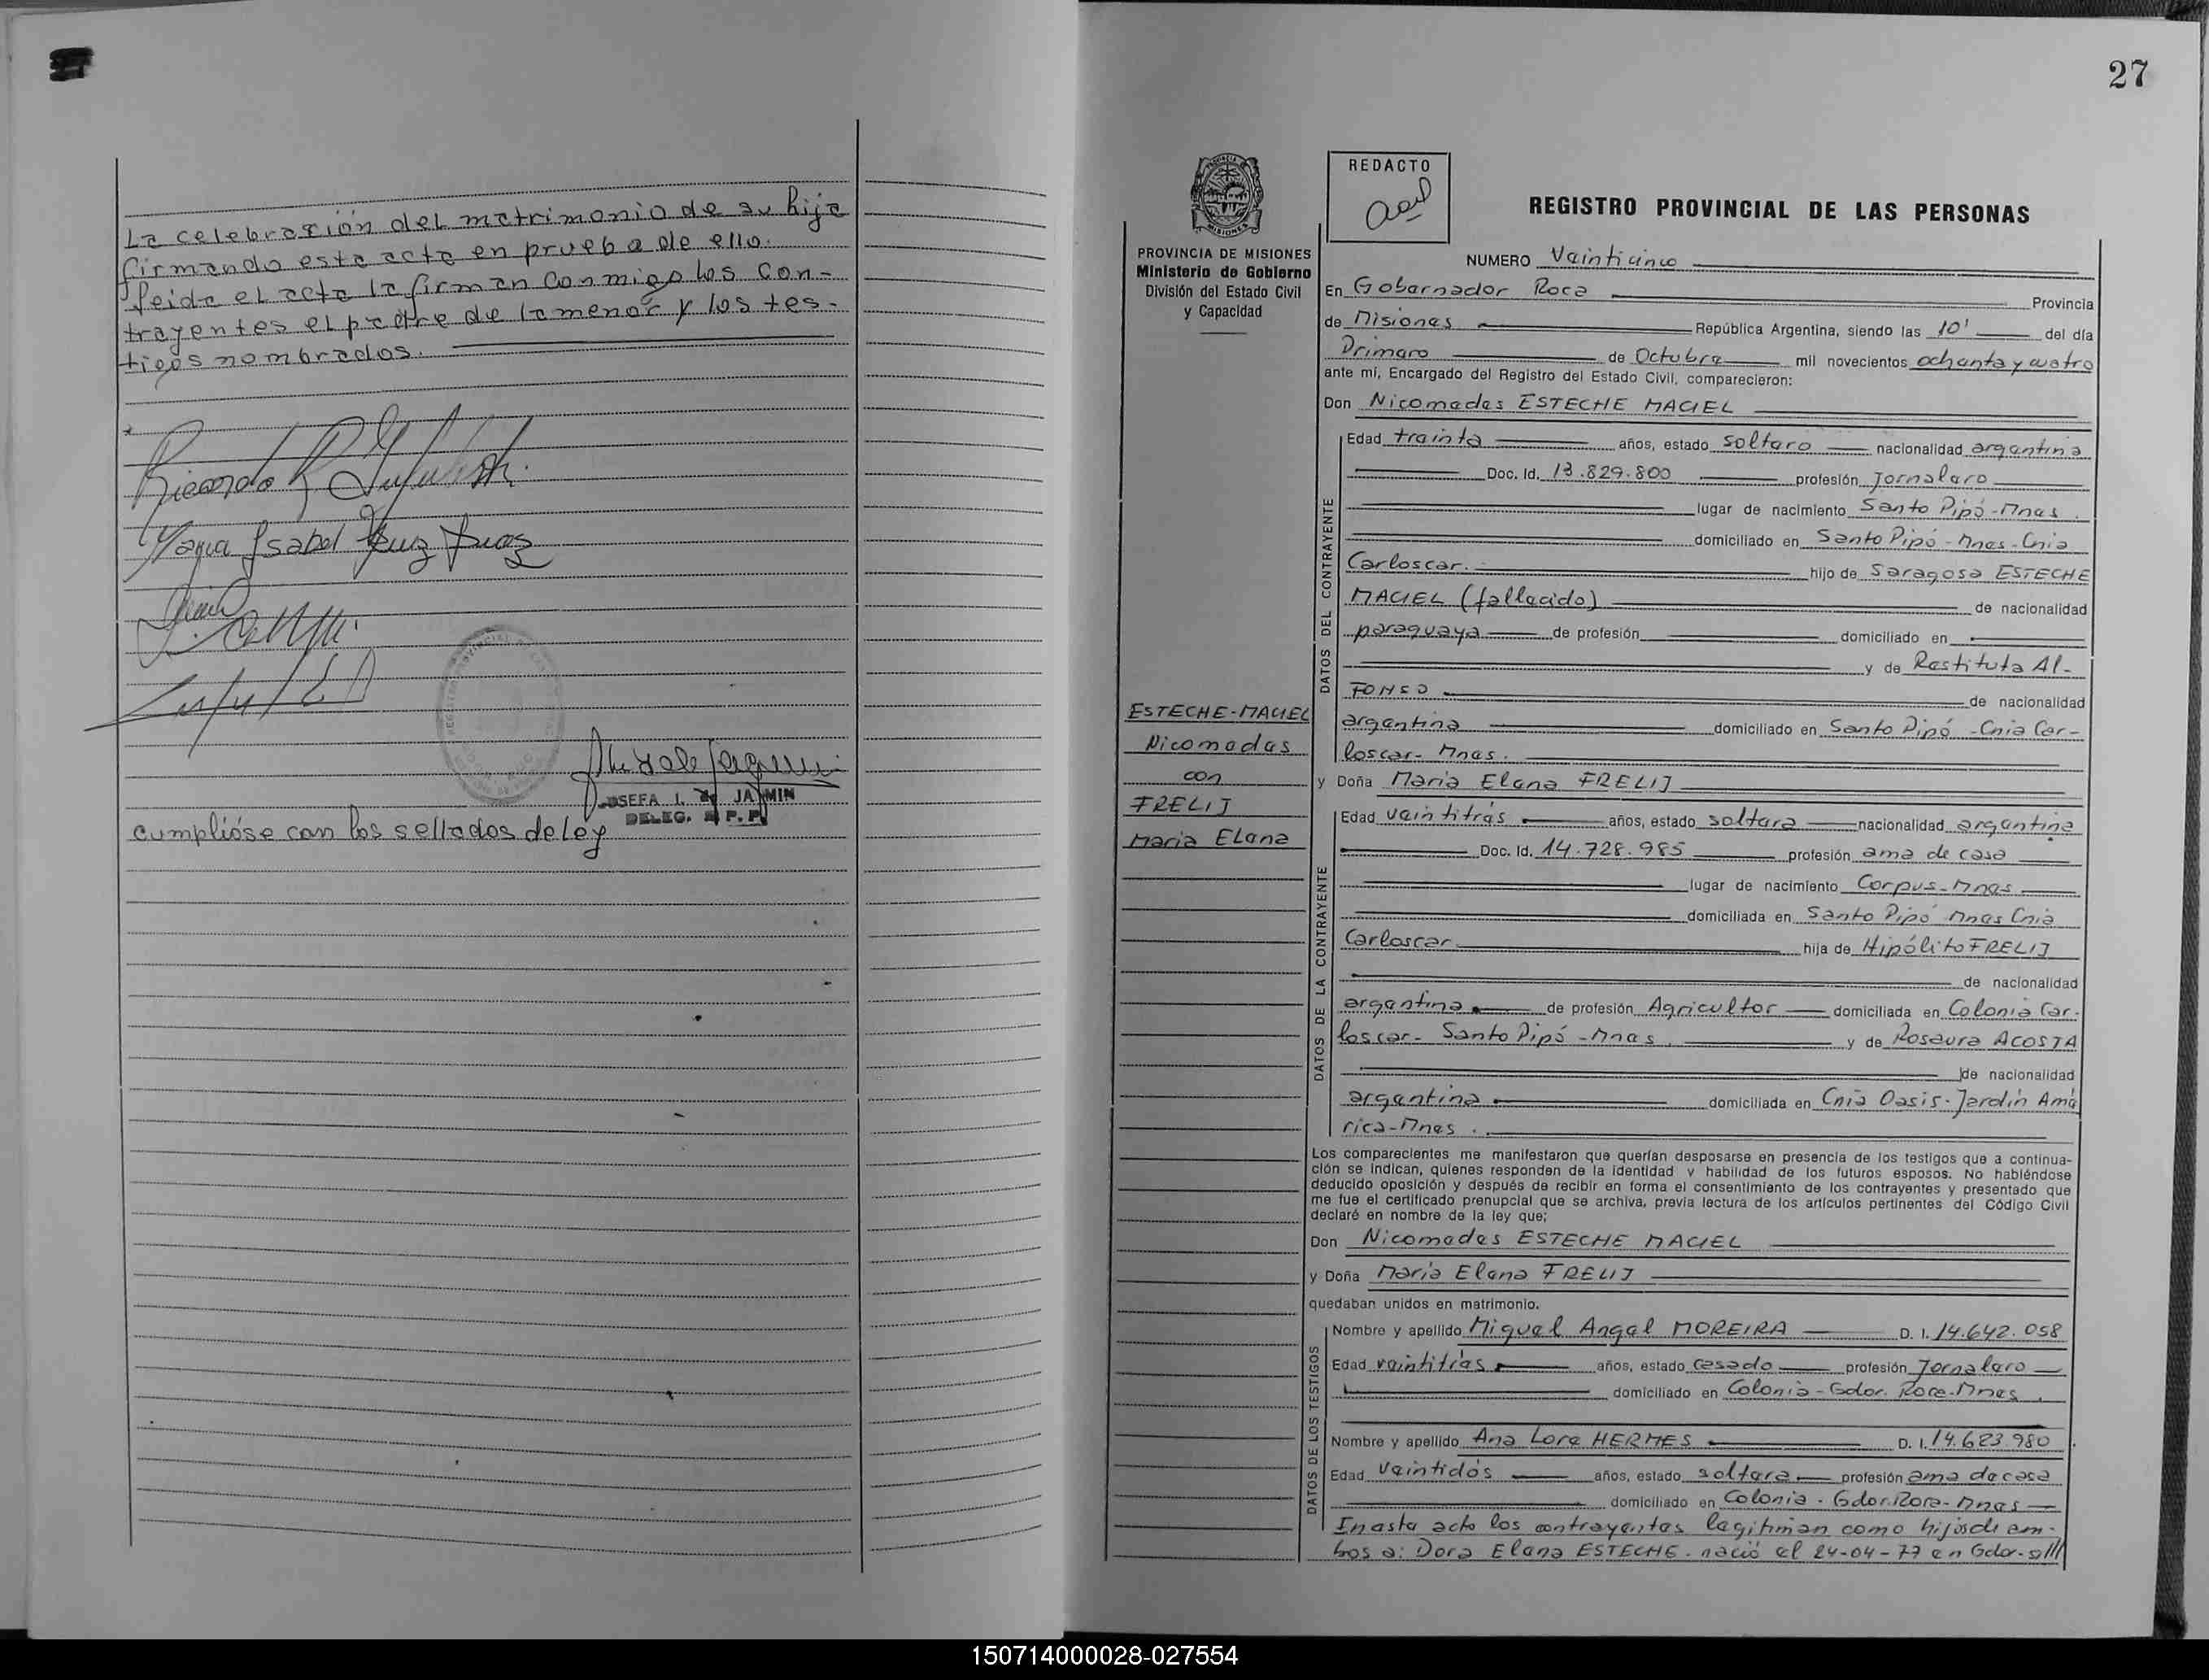 La celebración del matrimonio de su hija
firmando esta acta en prueba de ello.
Leida el acta la firman conmigo los con-
trayentes el padre de la menor y los tes-
tigos nombrados.
Maria Ysabel
JOSEFA I. de JAQMIN
DELEG. R. P. P.
cumplióse con los sellados de ley
27
PROVINCIA DE MISIONES
Ministerio de Gobierno
División del Estado Civil
y Capacidad
REDACTO
REGISTRO PROVINCIAL DE LAS PERSONAS
NUMERO Veinticinco
En Gobernador Roca Provincia
de Misiones República Argentina, siendo las 10' del día
Primero de Octubre mil novecientos ochenta y cuatro
ante mí, Encargado del Registro del Estado Civil, comparecieron:
Don Nicomedes ESTECHE MACIEL
DATOS DEL CONTRAYENTE
Edad treinta años, estado soltero nacionalidad argentina
Doc. Id. 13.829.800 profesión Jornalero
lugar de nacimiento Santo Pipó-Mnes.
domiciliado en Santo Pipó-Mnes-Cnia
Carloscar. hijo de Saragosa ESTECHE
MACIEL (fallecido) de nacionalidad
paraguaya de profesión domiciliado en
y de Restituta Al-
FONSO de nacionalidad
argentina domiciliado en Santo Pipó-Cnia Car-
loscar-Mnes.
ESTECHE-MACIEL
Nicomedes
con
FRELIJ
Maria Elena
y Doña Maria Elena FRELIJ
DATOS DE LA CONTRAYENTE
Edad veintitrés años, estado soltera nacionalidad argentina
Doc. Id. 14.728.985 profesión ama de casa
lugar de nacimiento Corpus-Mnes
domiciliada en Santo Pipó Mnes Cnia
Carloscar hija de Hipólito FRELIJ
de nacionalidad
argentina de profesión Agricultor domiciliada en Colonia Car-
loscar- Santo Pipó-Mnes. y de Rosaura ACOSTA
de nacionalidad
argentina domiciliada en Cnia Oasis-Jardín Amé
rica-Mnes.
Los comparecientes me manifestaron que querían desposarse en presencia de los testigos que a continua-
ción se indican, quienes responden de la identidad y habilidad de los futuros esposos. No habiéndose
deducido oposición y después de recibir en forma el consentimiento de los contrayentes y presentado que
me fue el certificado prenupcial que se archiva, previa lectura de los artículos pertinentes del Código Civil
declaré en nombre de la ley que;
Don Nicomedes ESTECHE MACIEL
y Doña María Elena FRELIJ
quedaban unidos en matrimonio.
DATOS DE LOS TESTIGOS
Nombre y apellido Miguel Angel MOREIRA D. I. 14.642.058
Edad veintitrés años, estado casado profesión Jornalero
domiciliado en Colonia-Gdor. Roca-Mnes.
Nombre y apellido Ana Lore HERMES D. I. 14.623.980
Edad veintidós años, estado soltera profesión ama de casa
domiciliado en Colonia-Gdor. Roca-Mnes
En este acto los contrayentes legitiman como hijos de am-
bos a: Dora Elena ESTECHE. nació el 24-04-77 en Gdor.
150714000028-027554